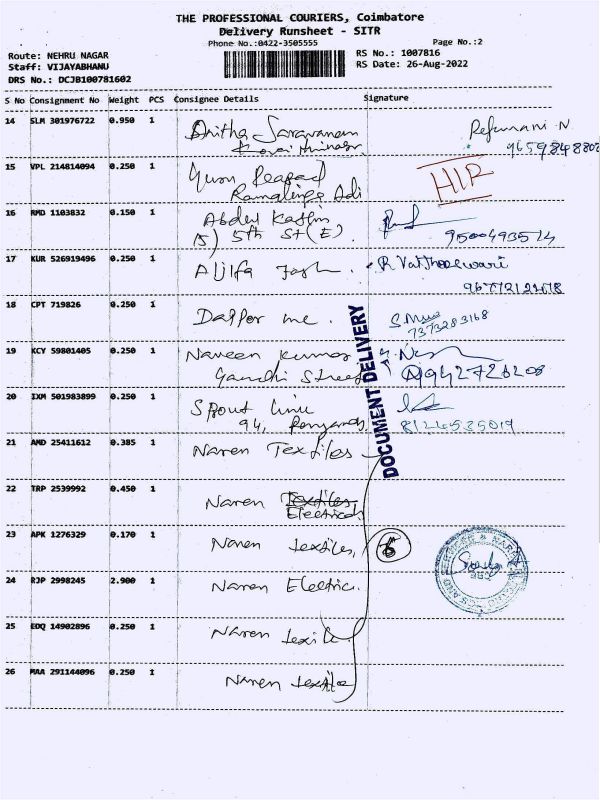 THE PROFESSIONAL COURIERS, Coimbatore
Delivery Runsheet - SITR
Phone No.:0422-3505555
Page No.:2
Route: NEHRU NAGAR
Staff: VIJAYABHANU
DRS No.: DCJB100781602
RS No.: 1007816
RS Date: 26-Aug-2022
S No Consignment No Weight PCS Consignee Details Signature
14 SLM 301976722 0.950 1 Anitha Saravanan
9659848802
15 VPL 214814094 0.250 1
Ramalinga Adi
16 RMD 1103832 0.150 1 Abdul Kasim
15) 5th St (E).
9500493514
17 KUR 526919496 0.250 1
18 CPT 719826 0.250 1
7373283168
19 KCY 59801405 0.250 1 Naveen Kumar
Gandhi Street
9942726208
20 IXM 501983899 0.250 1
94,
8124535019
DOCUMENT DELIVERY
21 AMD 25411612 0.385 1 Naren Textiles
22 TRP 2539992 0.450 1 Naren Textiles
Electricals
23 APK 1276329 0.170 1 Naren textiles, 6
24 RJP 2998245 2.900 1 Naren Electric.
25 EDQ 14902896 0.250 1 Naren
26 MAA 291144096 0.250 1 Naren textile